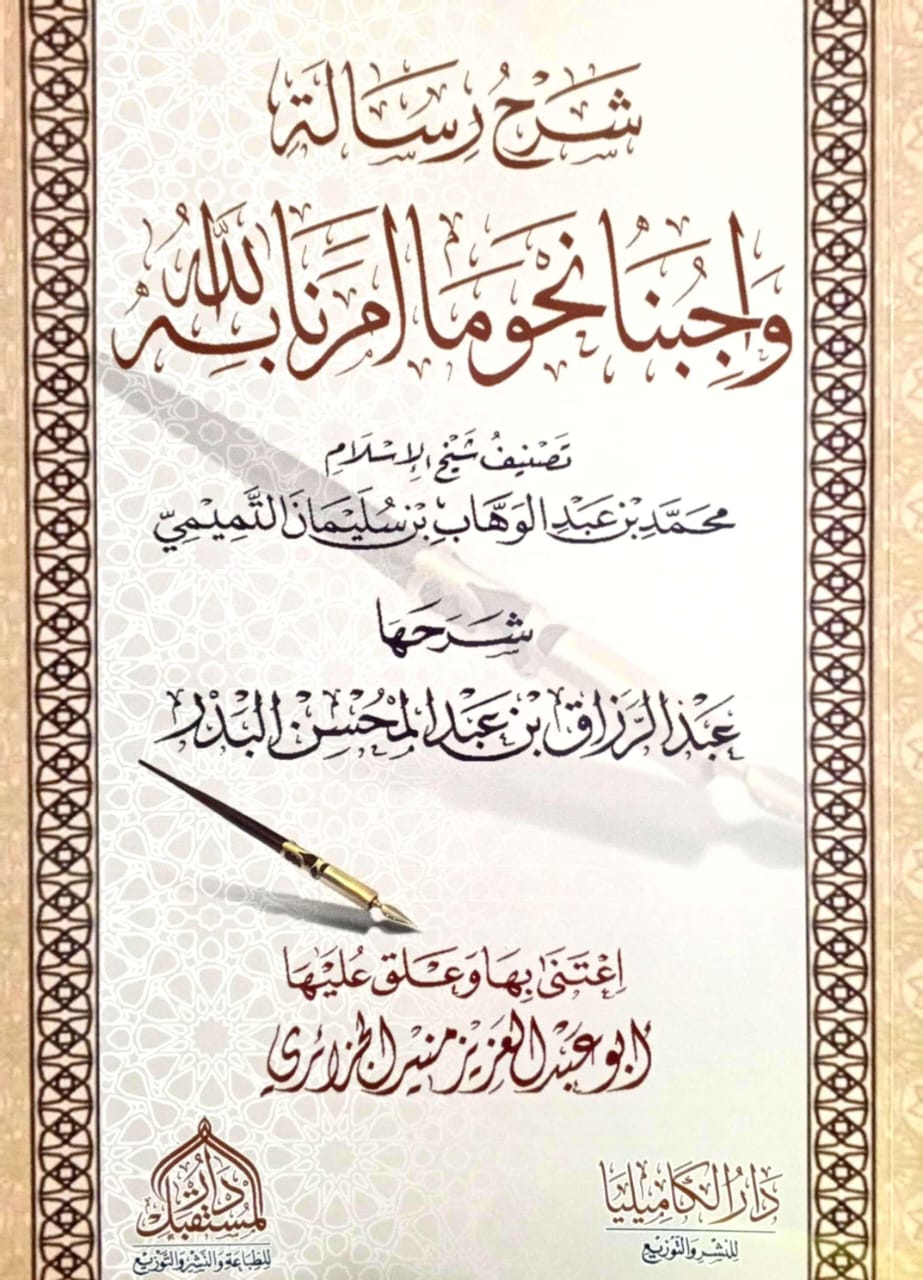 شَرْحُ رِسَالَةِ
وَاجِبُنَا نَحْوَ مَا أَمَرَنَا اللهُ بِهِ
تَصْنِيفُ شَيْخِ الإِسْلَامِ
مُحَمَّدِ بْنِ عَبْدِ الوَهَّابِ بْنِ سُلَيْمَانَ التَّمِيمِيِّ
شَرَحَهَا
عَبْدُ الرَّزَّاقِ بْنُ عَبْدِ المُحْسِنِ البَدْر
اِعْتَنَى بِهَا وَعَلَّقَ عَلَيْهَا
أبو عبد العزيز منير الجزائري
دَارُ الكَامِيلِيَا
لِلنَّشْرِ وَالتَّوْزِيعِ
دَارُ المُسْتَقْبَل
لِلطِّبَاعَةِ وَالنَّشْرِ وَالتَّوْزِيعِ